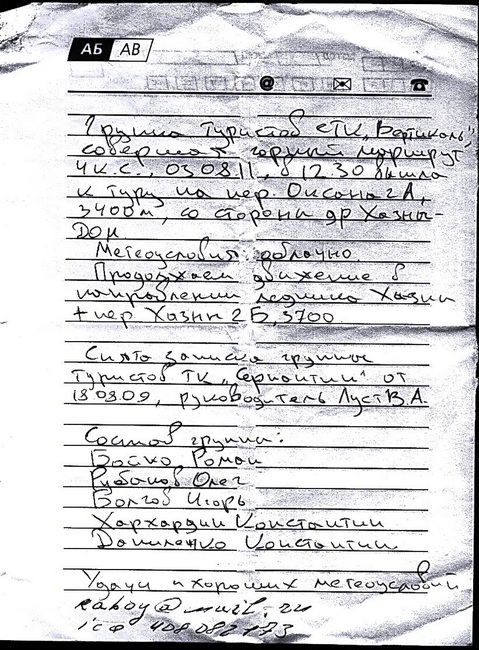 АБ АВ
Группа туристов СТК "Вертикаль",
совершает горный маршрут
4 к.с., 03.08.11, в 12 30 вышла
к туру на пер. Оксана 2А,
3400м, со стороны др Хазны-
Дон
Метеоусловия: облачно
Продолжаем движение в
направлении ледника Хазны
+ пер Хазны 2Б, 3700
Снята записка группы
туристов ТК "Серпантин" от
18.08.09, руководитель Луст В.А.
Состав группы:
Бойко Роман
Рубанов Олег
Болгов Игорь
Хархардин Константин
Даниленко Константин
Удачи и хороших метеоусловий
@mail.ru
icq 408082173